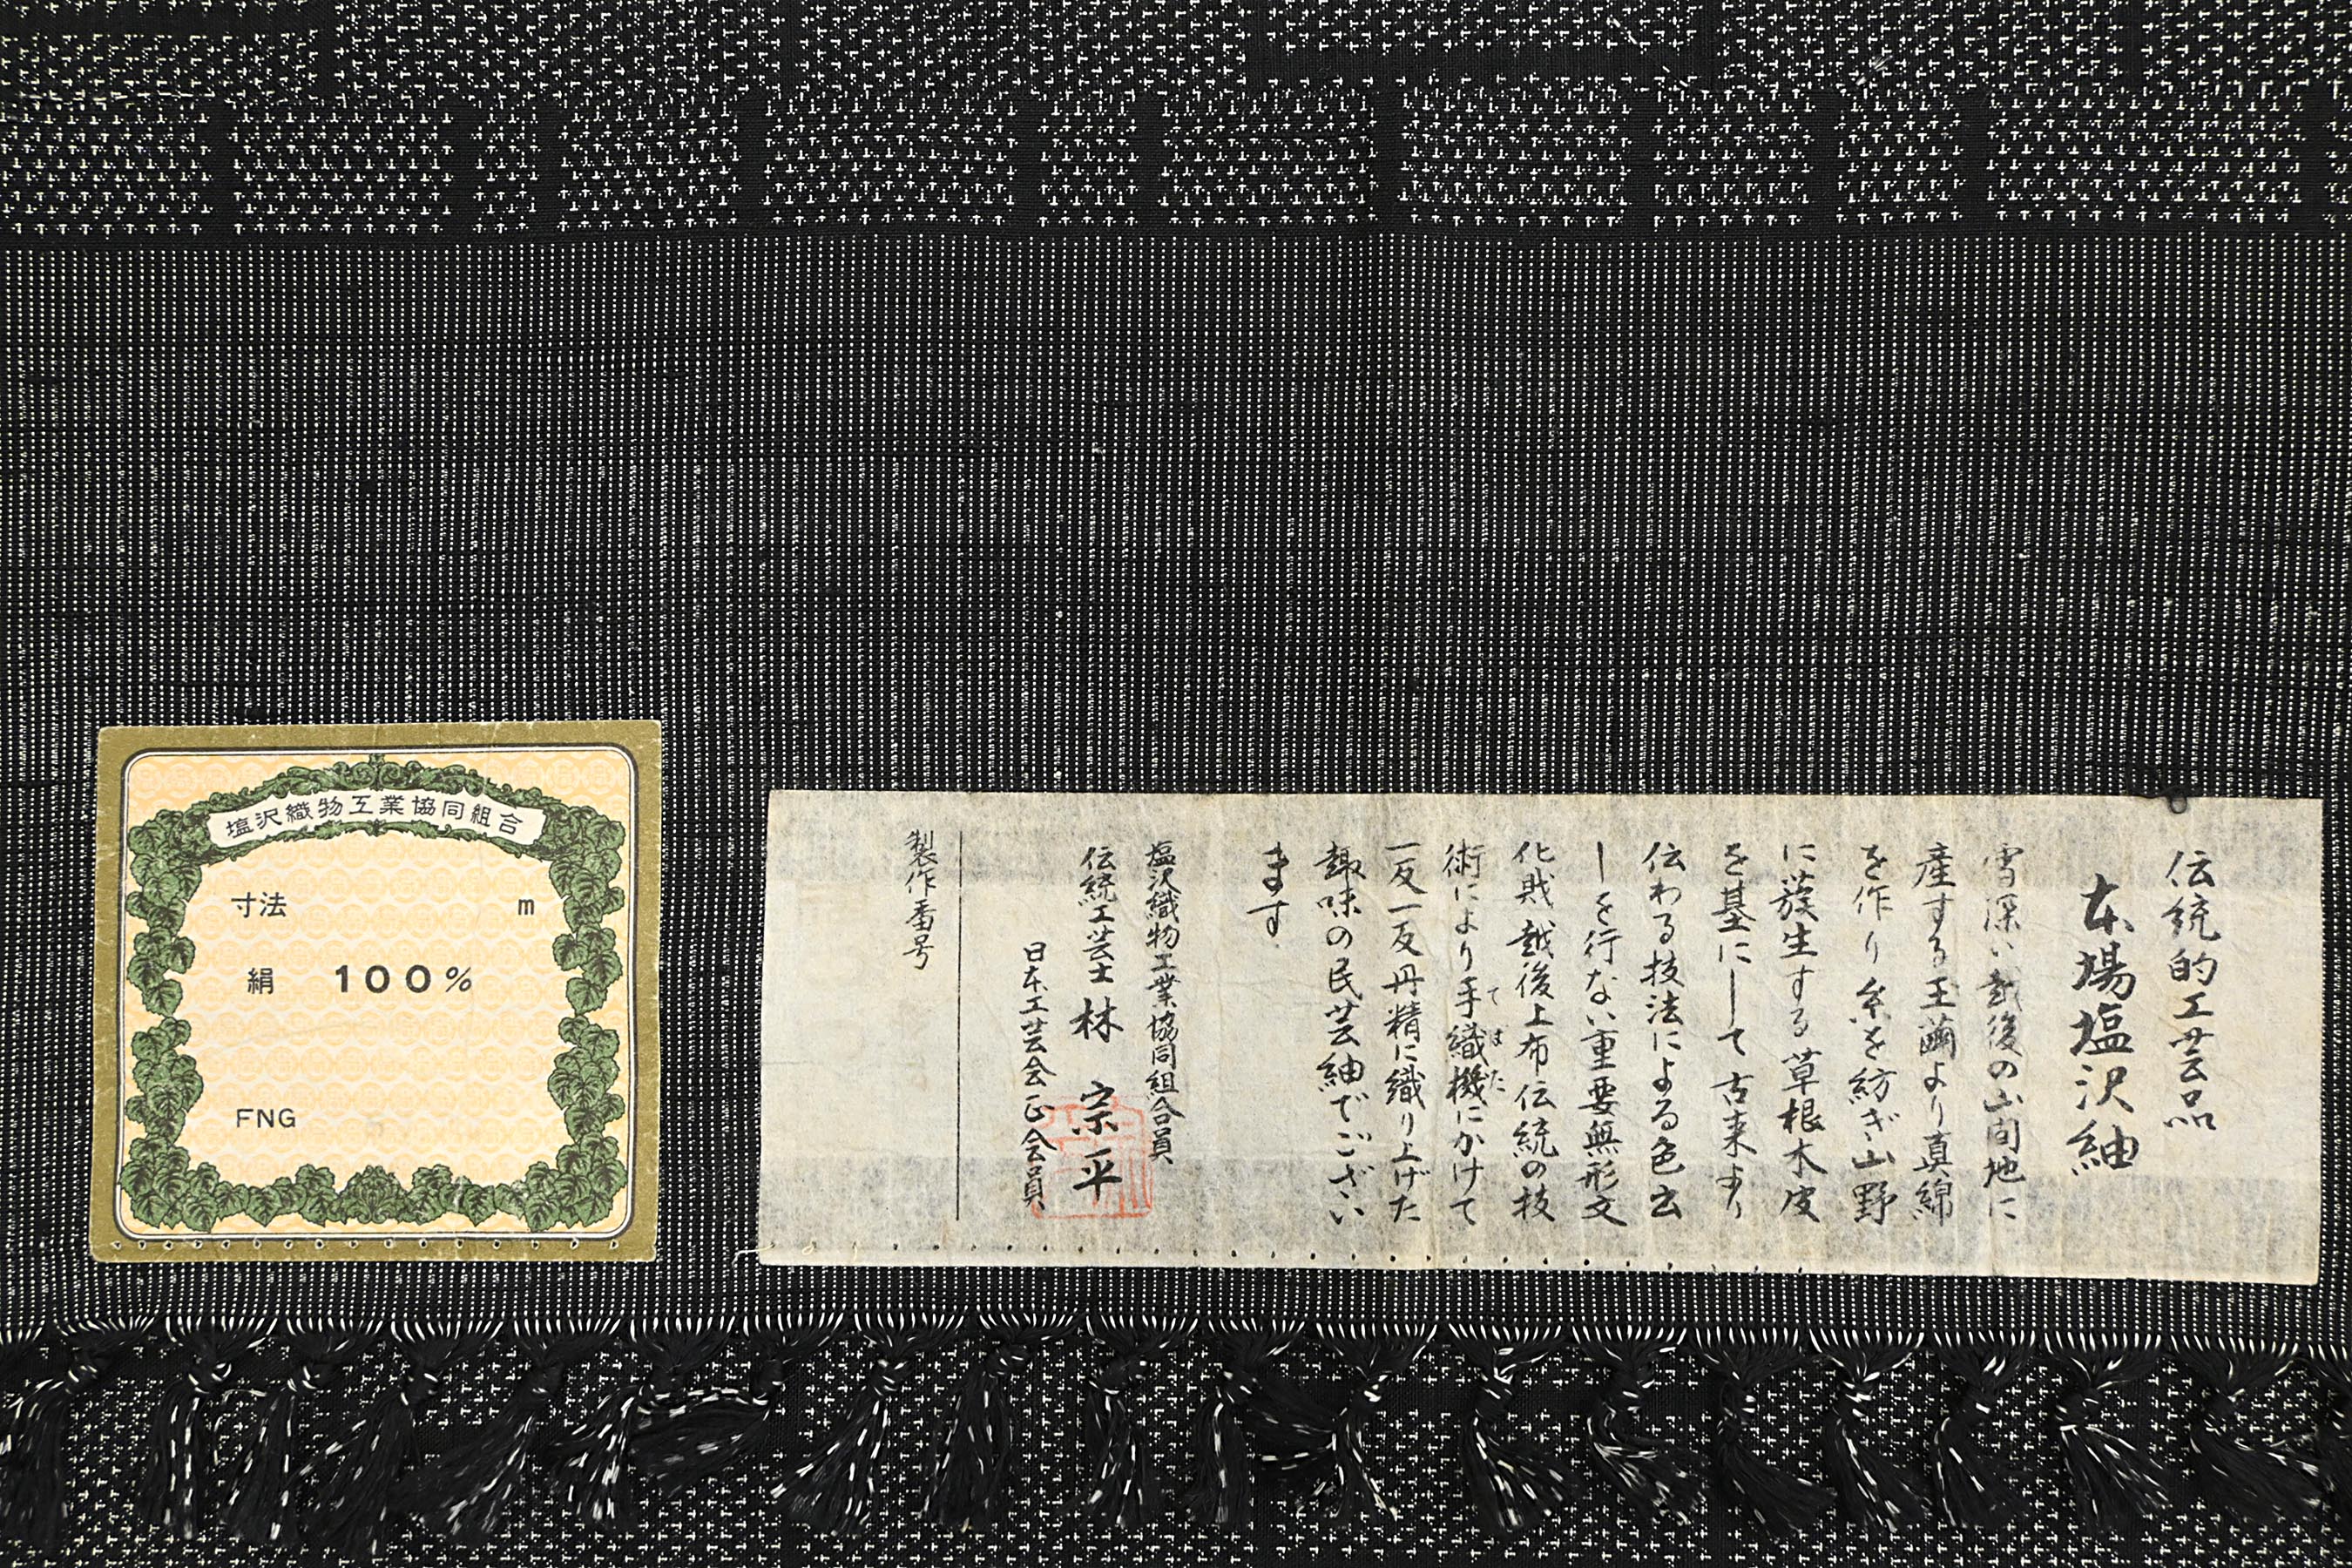 塩沢織物工業協同組合
寸法 m
絹 100%
FNG
伝統的工芸品
本場塩沢紬
雪深い越後の山間地に
産する玉繭より真綿
を作り糸を紡ぎ山野
に蔟生する草根木皮
を基にして古来より
伝わる技法による色出
しを行ない重要無形文
化財越後上布伝統の技
術により手織機にかけて
てはた
一反一反丹精に織り上げた
趣味の民芸紬でござい
ます
塩沢織物工業協同組合員
伝統工芸士 林 宗平
日本工芸会正会員
製作番号